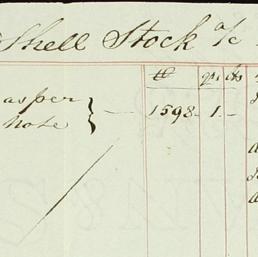 Shell Stock a/c
lb qrs cts
as per } — 1598 1 -
Note